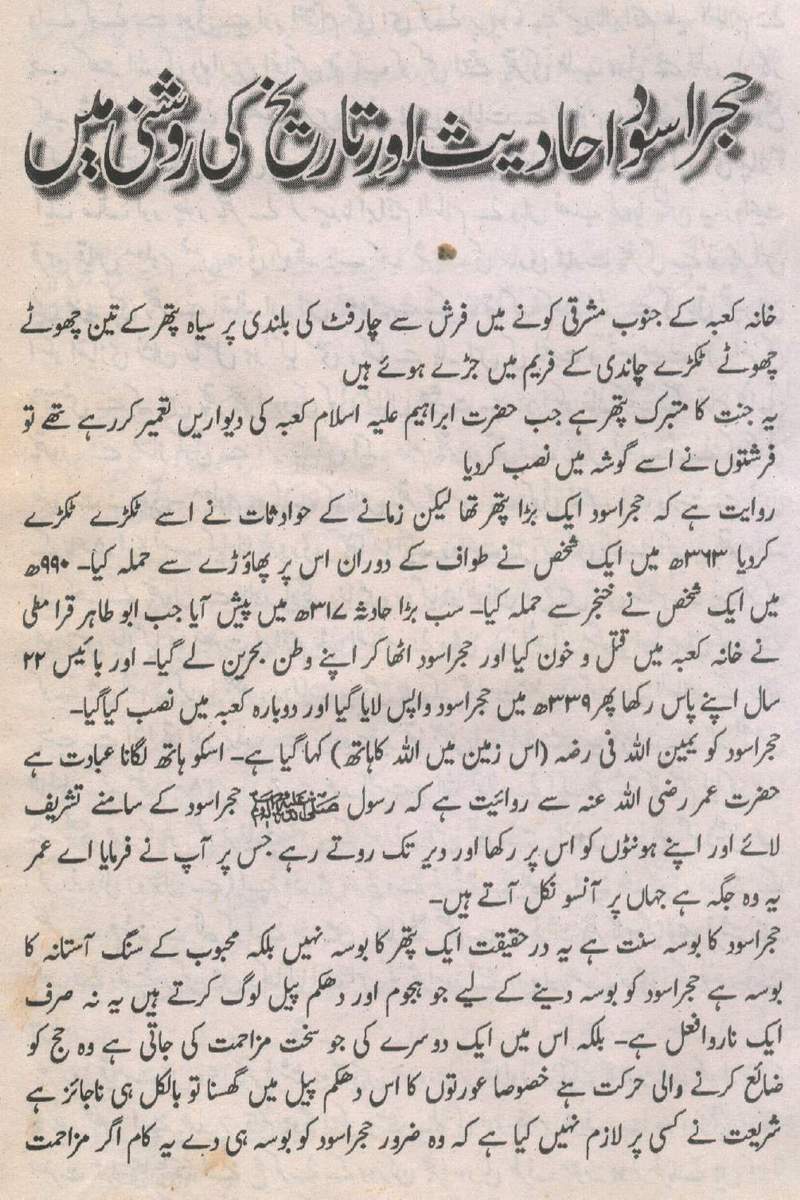 حجراسود احادیث اور تاریخ کی روشنی میں
خانہ کعبہ کے جنوب مشرقی کونے میں فرش سے چارفٹ کی بلندی پر سیاہ پتھر کے تین چھوٹے
چھوٹے ٹکڑے چاندی کے فریم میں جڑے ہوئے ہیں
یہ جنت کا متبرک پتھر ہے جب حضرت ابراہیم علیہ اسلام کعبہ کی دیواریں تعمیر کررہے تھے تو
فرشتوں نے اسے گوشہ میں نصب کردیا
روایت ہے کہ حجراسود ایک بڑا پتھر تھا لیکن زمانے کے حوادثات نے اسے ٹکڑے ٹکڑے
کردیا ۳۶۳ھ میں ایک شخص نے طواف کے دوران اس پر پھاؤڑے سے حملہ کیا۔ ۹۹۰ھ
میں ایک شخص نے خنجر سے حملہ کیا۔ سب بڑا حادثہ ۳۱۷ھ میں پیش آیا جب ابو طاہر قرامطی
نے خانہ کعبہ میں قتل و خون کیا اور حجراسود اٹھا کر اپنے وطن بحرین لے گیا۔ اور بائیس ۲۲
سال اپنے پاس رکھا پھر ۳۳۹ھ میں حجراسود واپس لایا گیا اور دوبارہ کعبہ میں نصب کیاگیا۔
حجراسود کو یمین اللہ فی رضہ (اس زمین میں اللہ کاہاتھ) کہا گیا ہے۔ اسکو ہاتھ لگانا عبادت ہے
حضرت عمر رضی اللہ عنہ سے روائیت ہے کہ رسول ﷺ حجراسود کے سامنے تشریف
لائے اور اپنے ہونٹوں کو اس پر رکھا اور دیر تک روتے رہے جس پر آپ نے فرمایا اے عمر
یہ وہ جگہ ہے جہاں پر آنسو نکل آتے ہیں۔
حجراسود کا بوسہ سنت ہے یہ درحقیقت ایک پتھر کا بوسہ نہیں بلکہ محبوب کے سنگ آستانہ کا
بوسہ ہے حجراسود کو بوسہ دینے کے لیے جو ہجوم اور دھکم پیل لوگ کرتے ہیں یہ نہ صرف
ایک ناروافعل ہے۔ بلکہ اس میں ایک دوسرے کی جو سخت مزاحمت کی جاتی ہے وہ حج کو
ضائع کرنے والی حرکت ہے خصوصا عورتوں کا اس دھکم پیل میں گھسنا تو بالکل ہی ناجائز ہے
شریعت نے کسی پر لازم نہیں کیا ہے کہ وہ ضرور حجراسود کو بوسہ ہی دے یہ کام اگر مزاحمت